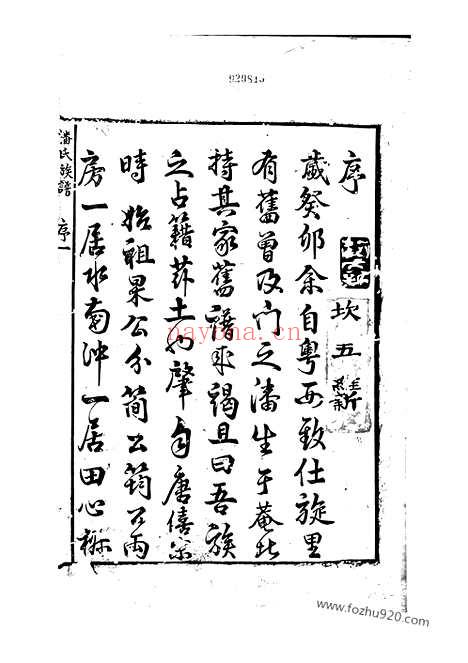 929845
序
坎五
歲癸卯余自粵西致仕旋里
有舊曾及門之潘生于菴北
持其家舊譜來謁且曰吾族
之占籍茲土也肇自唐僖宗
時始祖果公分簡公筠公兩
房一居水南沖一居田心
潘氏族譜 序一
nayona.cn
www.fozhu920.com